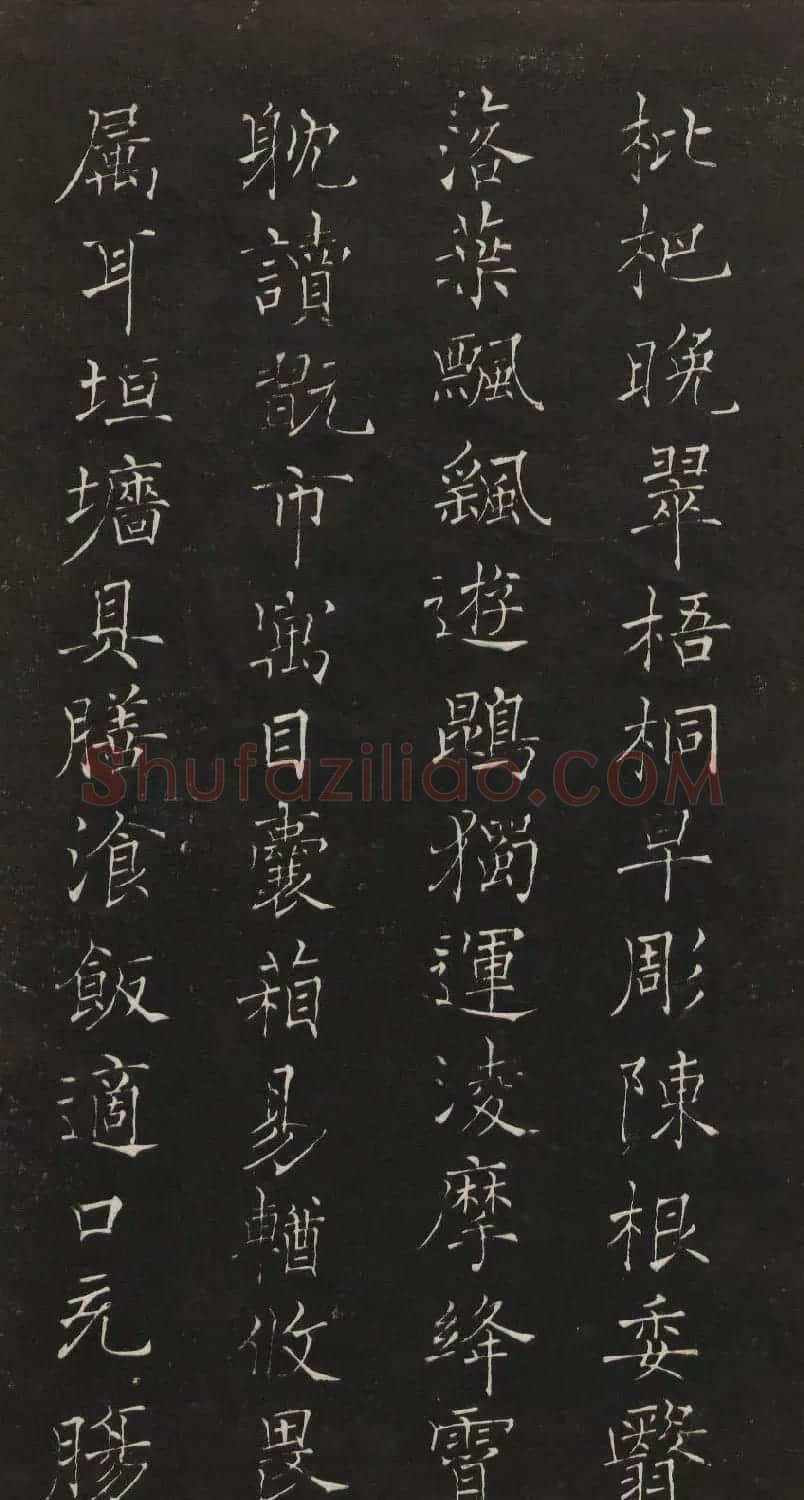 枇杷晚翠梧桐早彫陳根委翳
落葉飄颻遊鵾獨運淩摩絳霄
耽讀翫市寓目囊葙易輶攸畏
属耳垣墻具膳湌飯適口充腸
Shufaziliao.COM